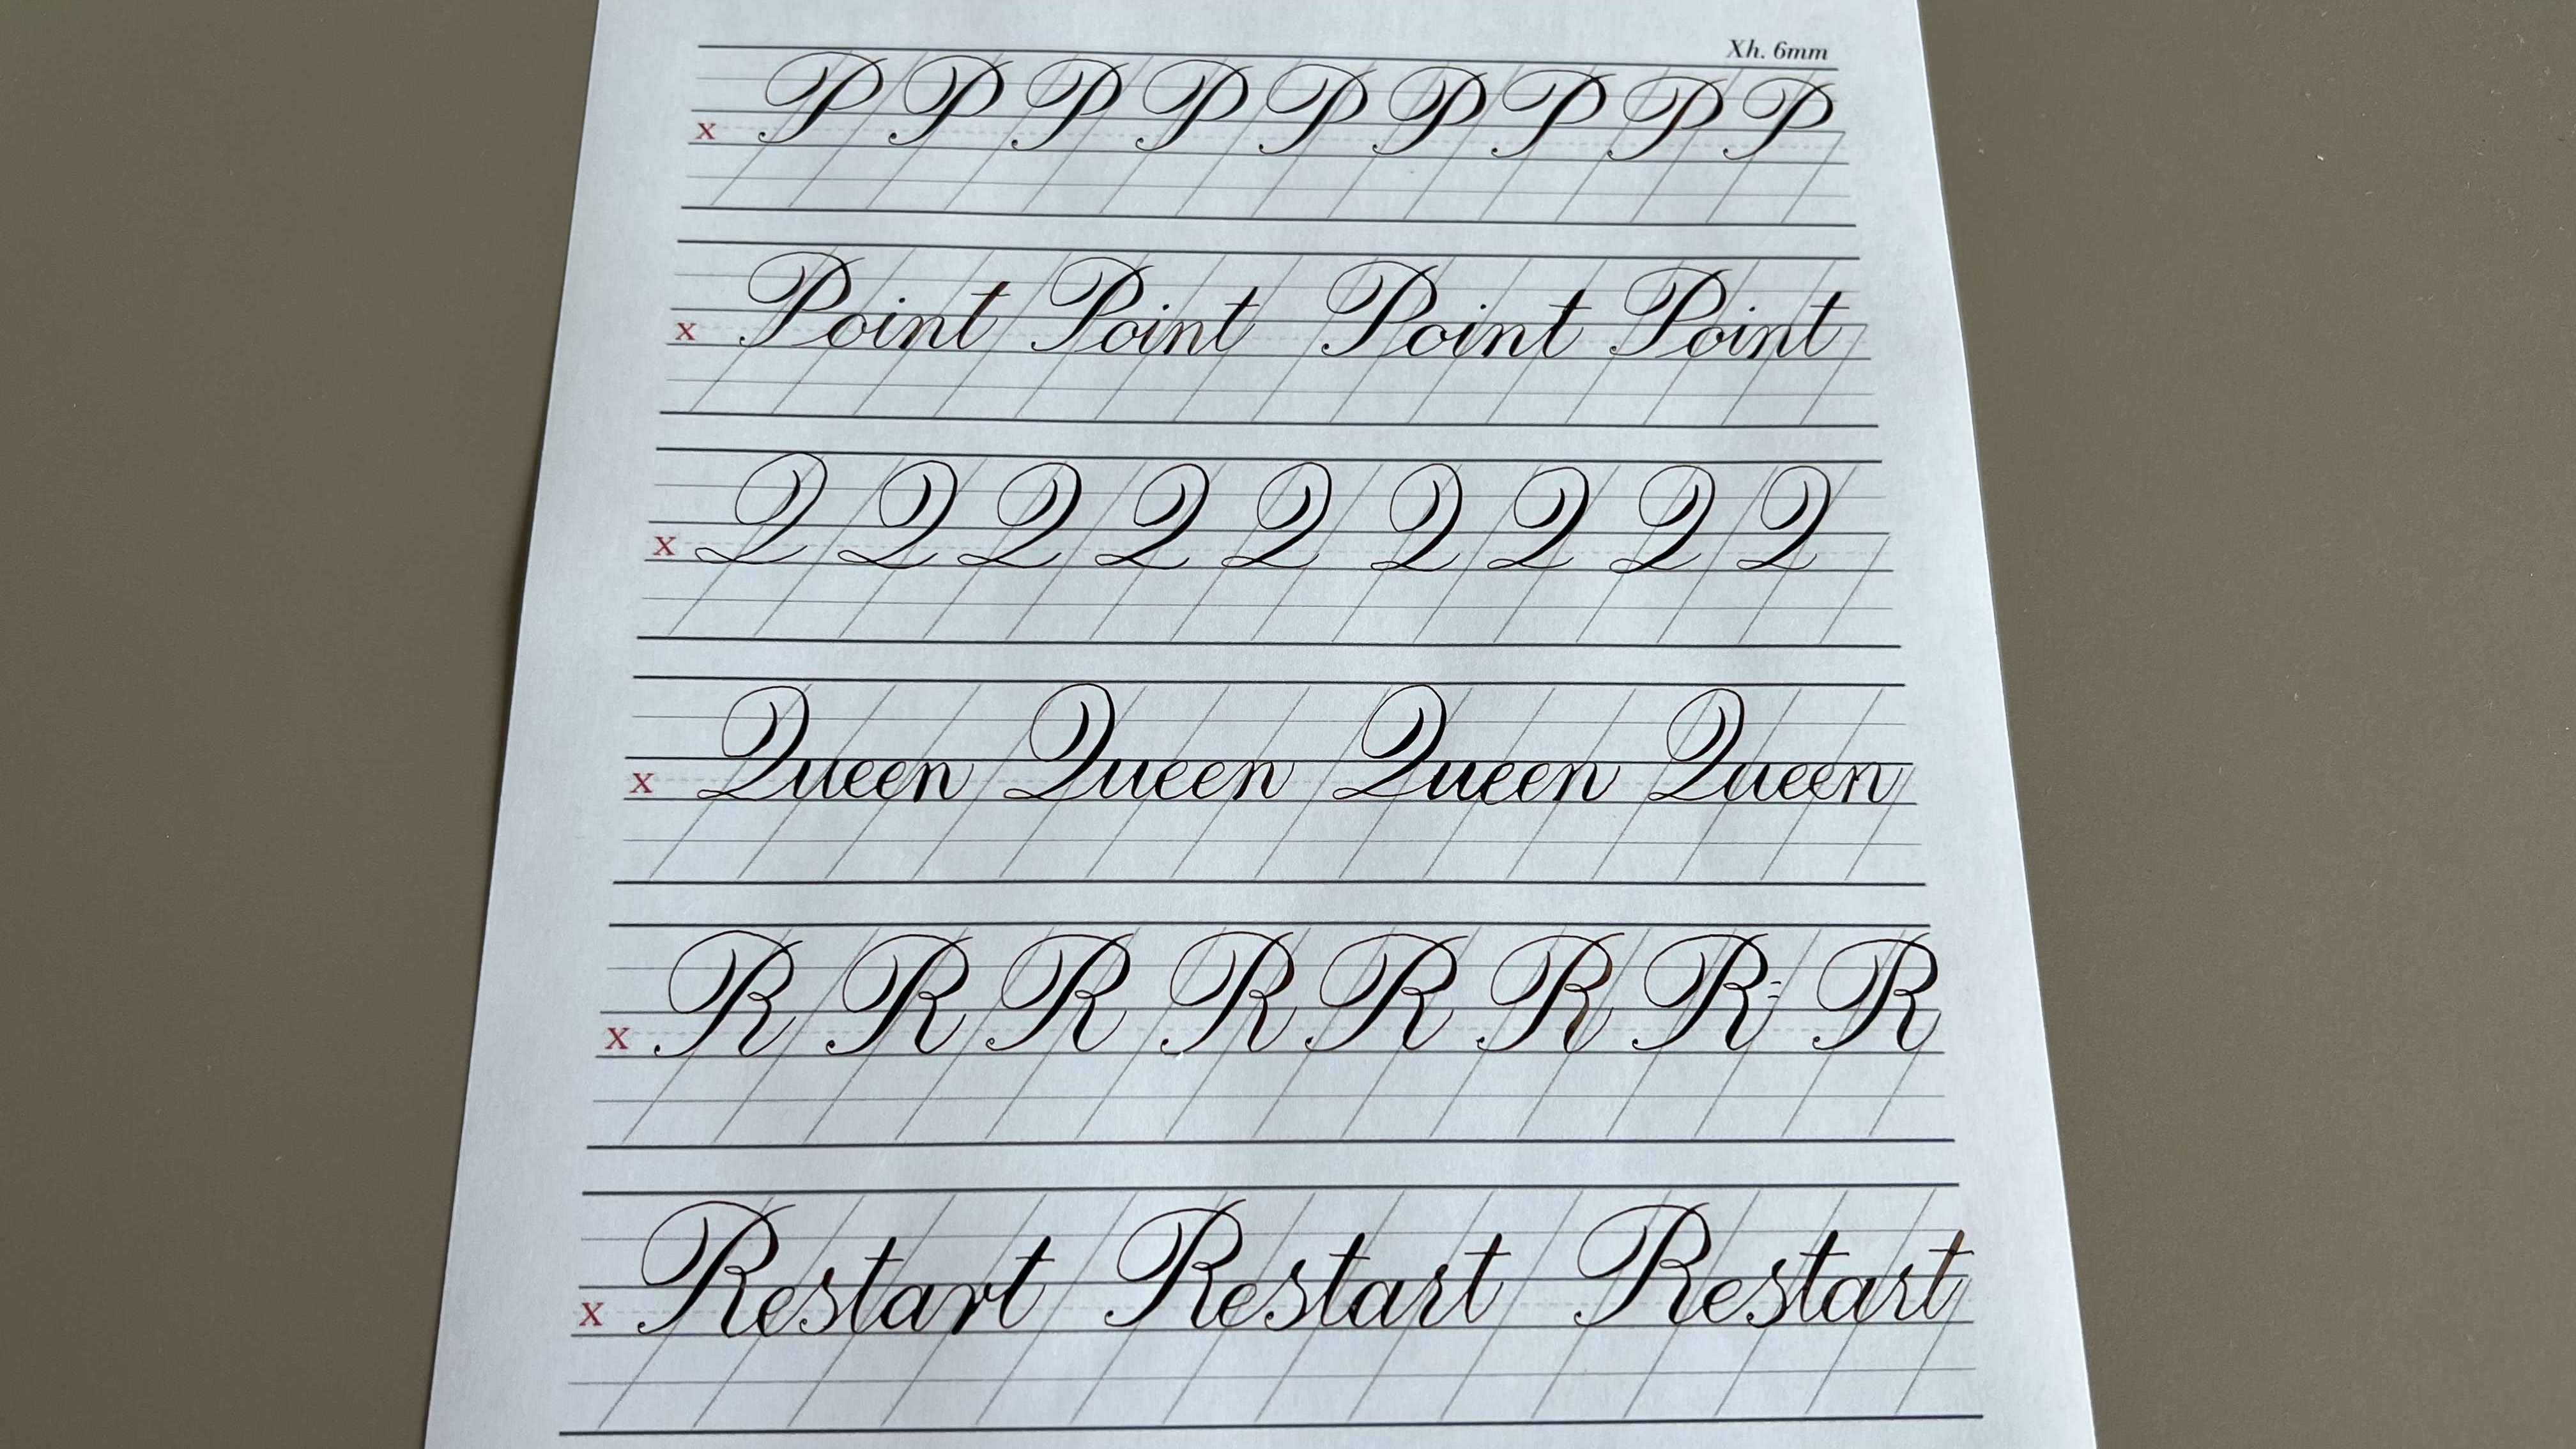 Xh. 6mm
x P P P P P P P P P
x Point Point Point Point
x Q Q Q Q Q Q Q Q Q
x Queen Queen Queen Queen
x R R R R R R R R
x Restart Restart Restart